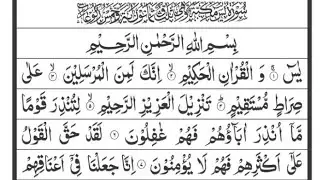 بِسْمِ اللهِ الرَّحْمٰنِ الرَّحِيْمِ
يٰسٓ ۝۱ وَ الْقُرْاٰنِ الْحَكِيْمِ ۝۲ اِنَّكَ لَمِنَ الْمُرْسَلِيْنَ ۝۳ عَلٰى
صِرَاطٍ مُّسْتَقِيْمٍ ۝۴ تَنْزِيْلَ الْعَزِيْزِ الرَّحِيْمِ ۝۵ لِتُنْذِرَ قَوْمًا
مَّاۤ اُنْذِرَ اٰبَآؤُهُمْ فَهُمْ غٰفِلُوْنَ ۝۶ لَقَدْ حَقَّ الْقَوْلُ
عَلٰۤى اَكْثَرِهِمْ فَهُمْ لَا يُؤْمِنُوْنَ ۝۷ اِنَّا جَعَلْنَا فِيْۤ اَعْنَاقِهِمْ